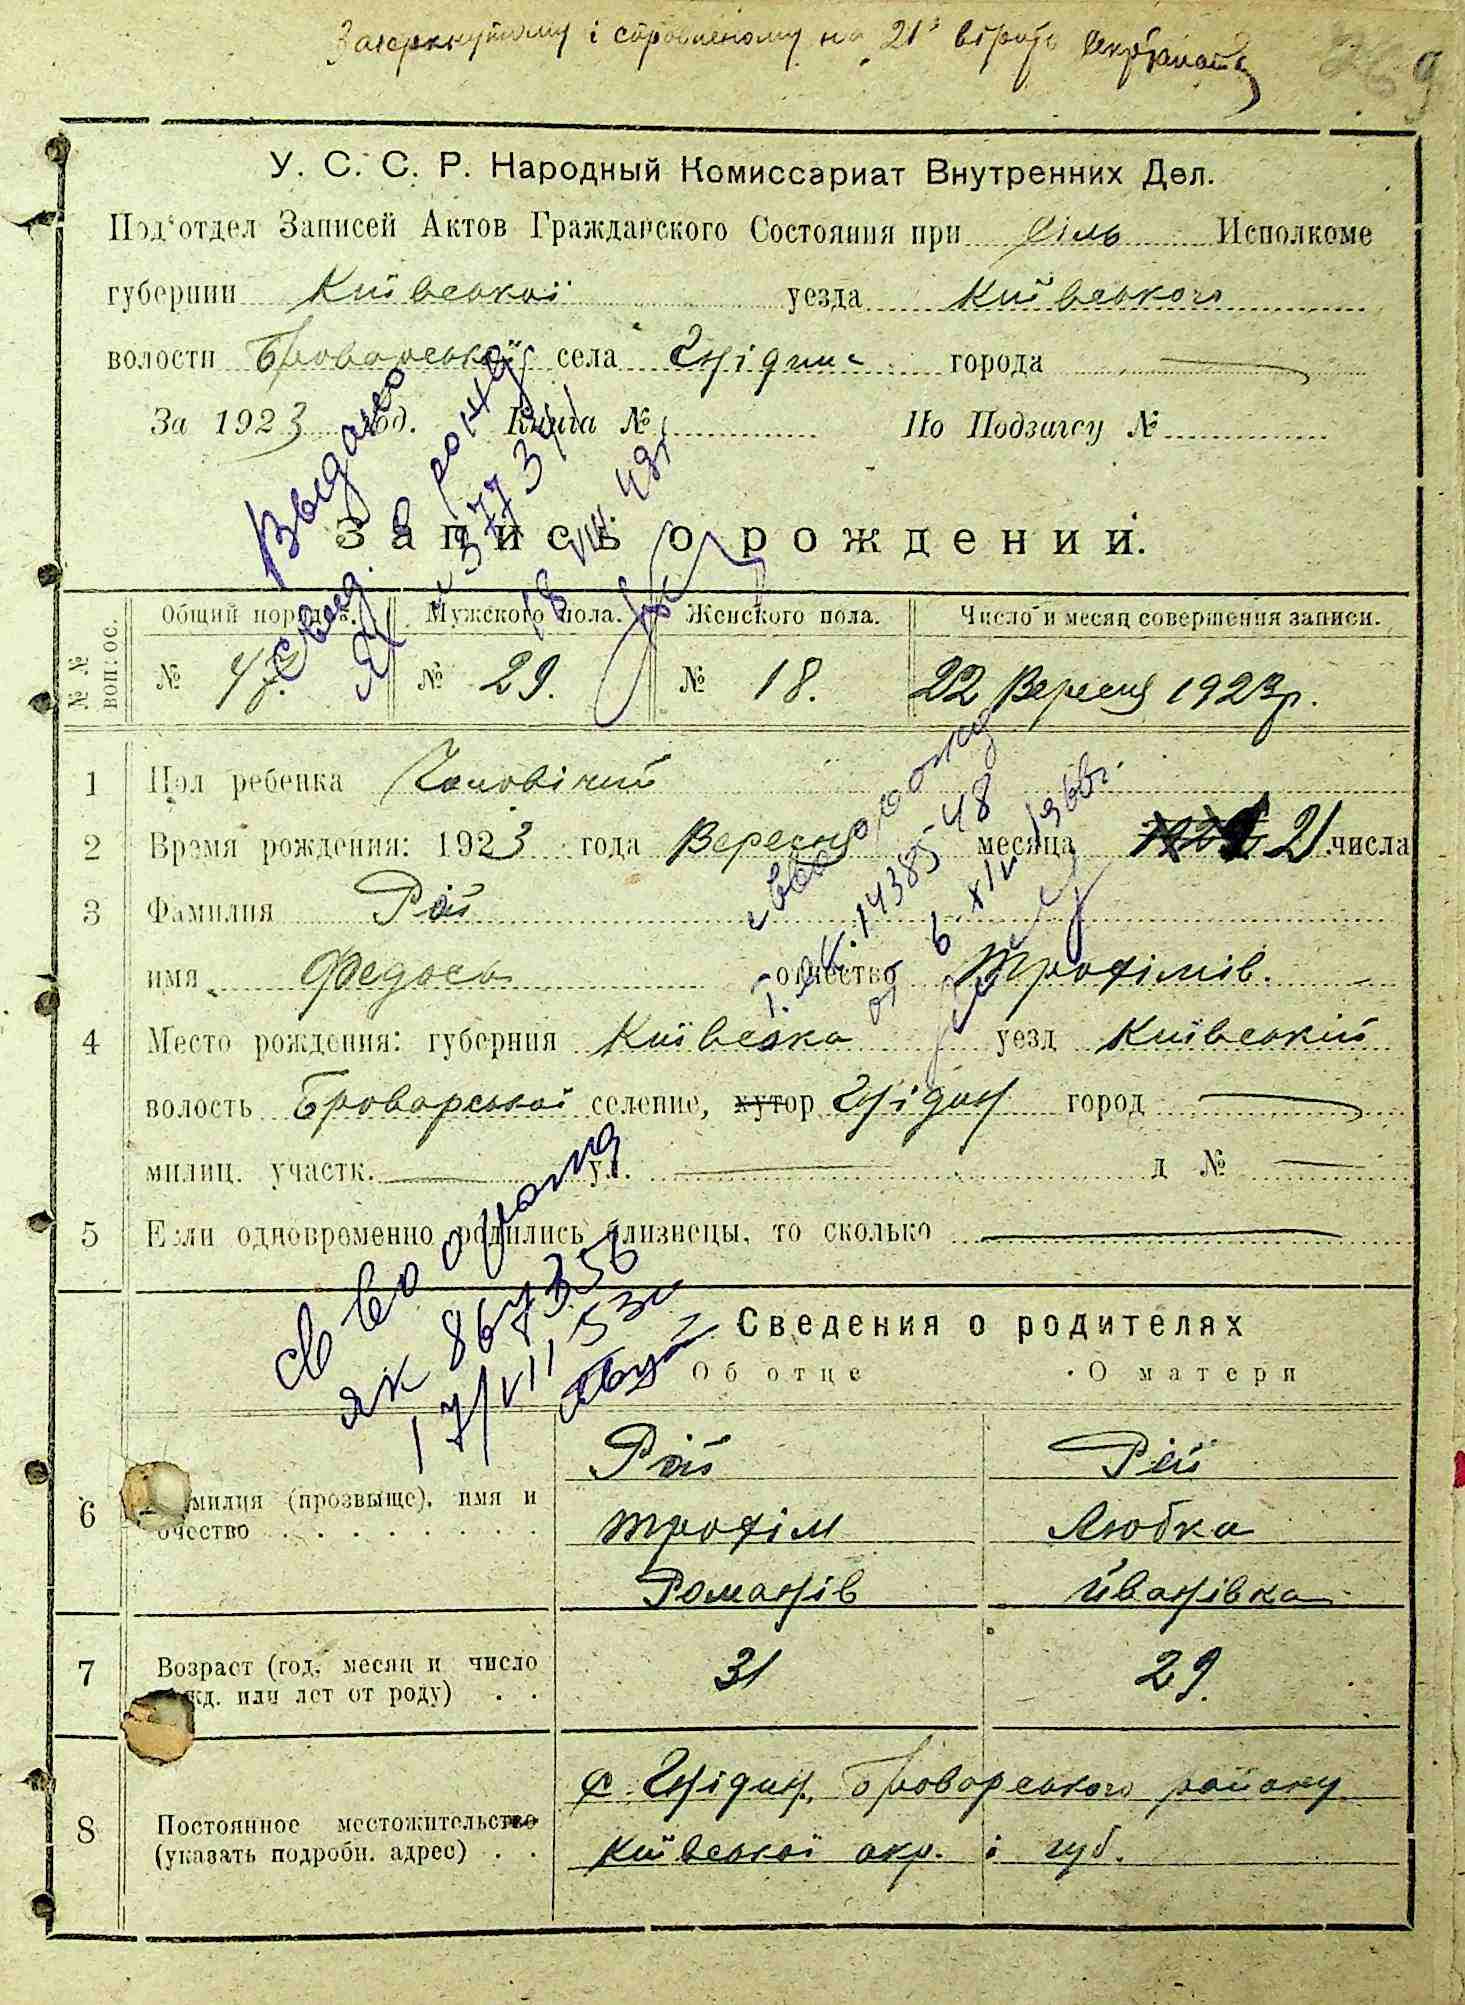 Закреснутому і справленому на 21 вірить
9
У. С. С. Р. Народный Комиссариат Внутренних Дел.
Под'отдел Записей Актов Гражданского Состояния при сіль Исполкоме
губернии Київської уезда Київського
волости Броварської села Гнідин города
За 1923 год. Книга № По Подзагсу №
Выдано
свид. о рожд
18 VII. 49г
Запись о рождении.
№ № вопрос. Общий порядк. Мужского пола. Женского пола. Число и месяц совершения записи.
№ 47. № 29. № 18. 22 Вересня 1923р.
1 Пол ребенка Чоловічий
2 Время рождения: 1923 года Вересня месяца 21 числа
3 Фамилия Рій
имя Федось отчество Трофімів.
4 Место рождения: губерния Київська уезд Київський
волость Броварської селение, хутор Гнідин город
милиц. участк. ул. д №
5 Если одновременно родились близнецы, то сколько
св во о рожд
ЯК 867356
17/VII 53г
Сведения о родителях
Об отце О матери
6 Фамилия (прозвыще), имя и отчество Рій Рій
Трофім Любка
Романів Иванівка
7 Возраст (год, месяц и число рожд. или лет от роду) 31 29.
8 Постоянное местожительство (указать подробн. адрес) с. Гнідин, Броварського району
Київської окр. і губ.